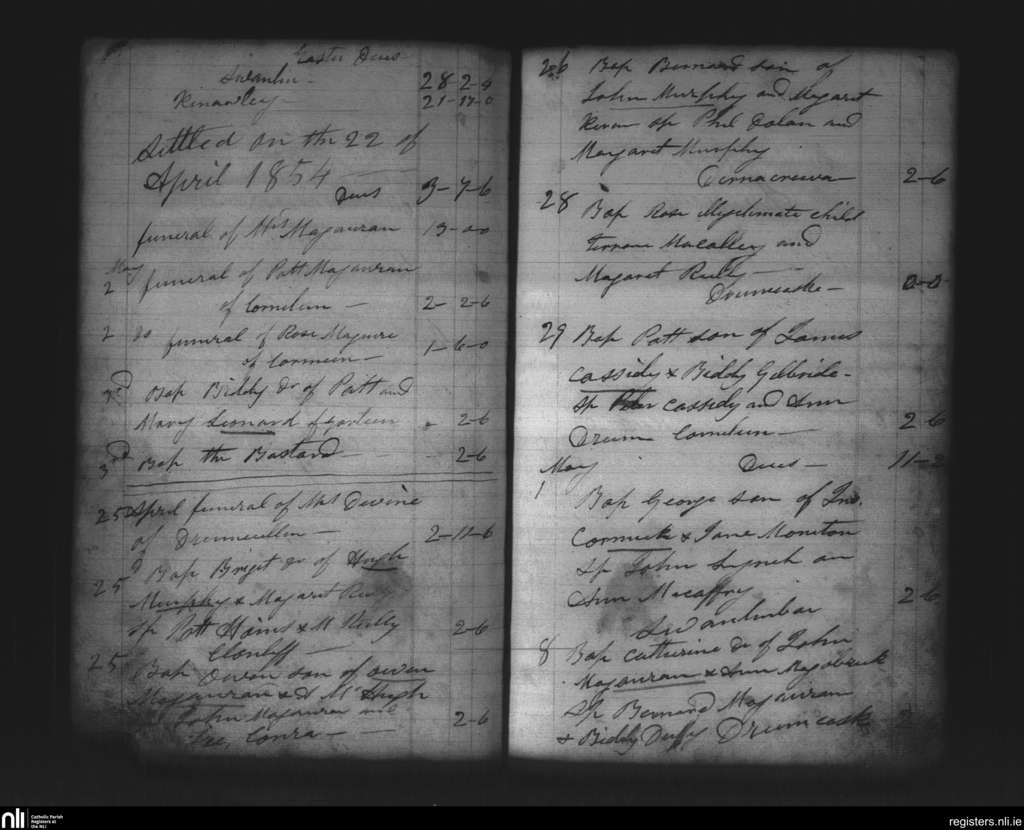 Easter Dues
Swanlin - 28-2-9
Kinawley - 21-17-0
Settled on the 22 of
April 1854
Dues 3-7-6
funeral of Mrs Magauran 13-00
May
2 funeral of Patt Magauran
of Cornelun - 2-2-6
2 do funeral of Rose Maguire
of Cormeen - 1-6-0
3rd Bap Biddy dr of Patt and
Mary Leonard of Gorteen 2-6
3rd Bap the Bastard 2-6
25 April funeral of Mrs Devine
of 2-11-6
25 Bap Briget dr of Hugh
Murphy & Magaret Reily
Sp Patt & M Reilly 2-6
Clonliff -
25 Bap Owen son of Owen
Magauran & McHugh
John Magauran and 2-6
26 Bap Bernard son of
John Murphy and Magaret
Sp Phil Dolan and
Margaret Murphy
Dernacreeva 2-6
28 Bap Rose Illegitimate child
Macalley and
Magaret Reilly -
Drumcaske -
29 Bap Patt son of James
Cassidy & Biddy Gilbride -
Sp Peter Cassidy and Ann
Drum Cornelun - 2-6
May Dues - 11-
1 Bap George son of Jno.
Cormick & Jane
Sp John Lynch an
Ann Macaffry 2-6
Swanlinbar
8 Bap Catherine dr of John
Magauran & Ann
Sp Bernard Magauran
& Biddy Duffy Drumcask 2
nli Catholic Parish
Registers at
the NLI
registers.nli.ie